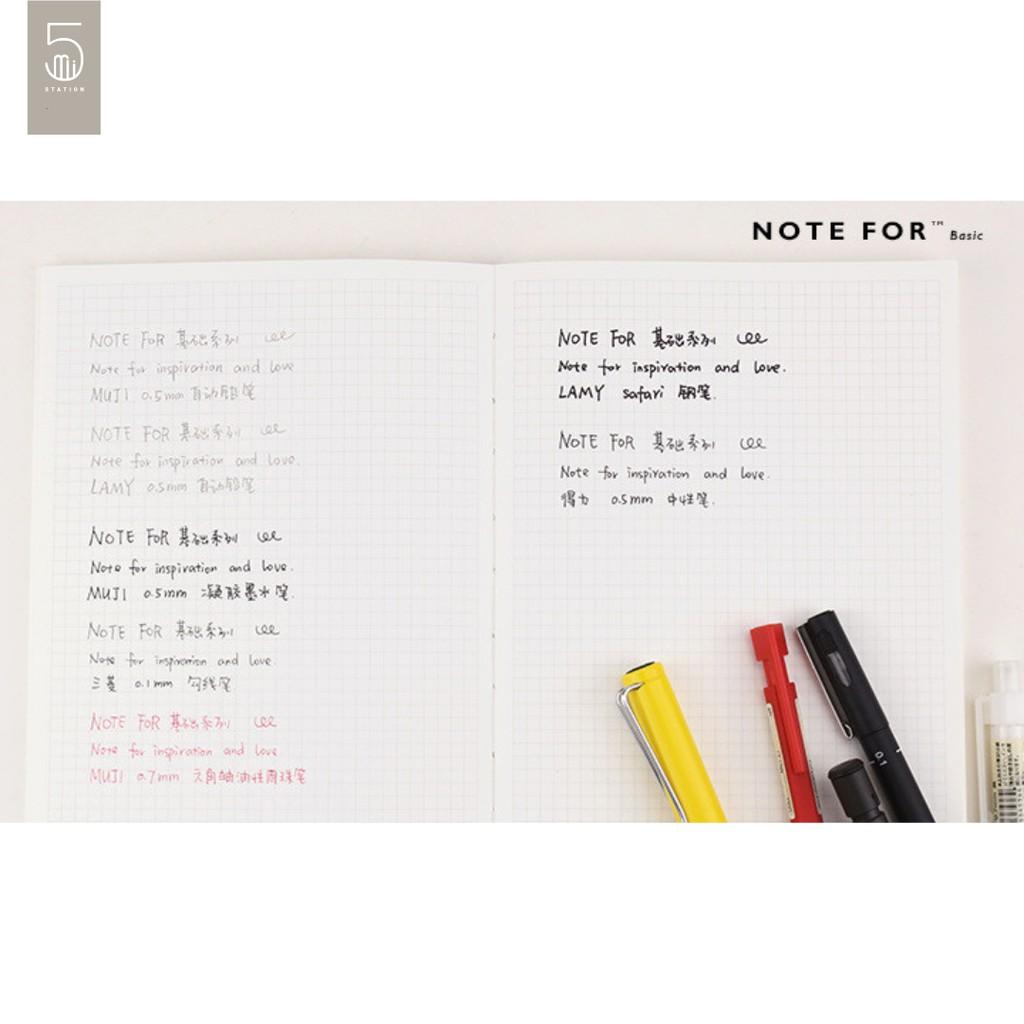 5
mi
STATION
NOTE FOR™ Basic
NOTE FOR 基础系列
Note for inspiration and love
MUJI 0.5mm 自动铅笔
NOTE FOR 基础系列
Note for inspiration and love.
LAMY 0.5mm 自动铅笔
NOTE FOR 基础系列
Note for inspiration and love.
MUJI 0.5mm 凝胶墨水笔.
NOTE FOR 基础系列
Note for inspiration and love.
三菱 0.1mm 勾线笔
NOTE FOR 基础系列
Note for inspiration and love
MUJI 0.7mm 六角轴油性圆珠笔
NOTE FOR 基础系列
Note for inspiration and love.
LAMY safari 钢笔.
NOTE FOR 基础系列
Note for inspiration and love.
得力 0.5mm 中性笔.
0.1